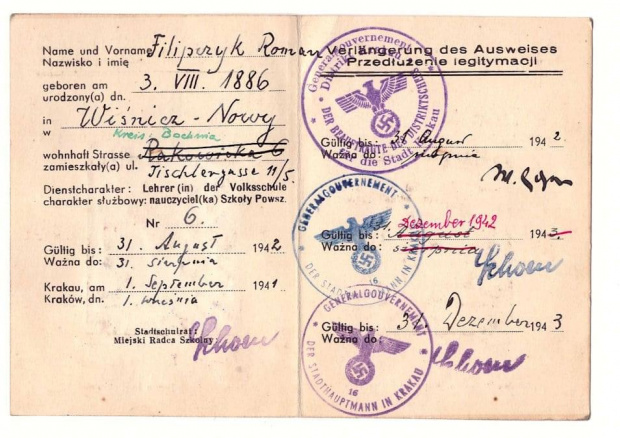 Name und Vorname Filipczyk Roman
Nazwisko i imię
geboren am 3. VIII. 1886
urodzony(a) dn.
in Wiśnicz-Nowy
w Kreis: Bochnia
wohnhaft Strasse Rakowicka 6
zamieszkały(a) ul. Tischlergasse 11/5
Dienstcharakter: Lehrer(in) der Volksschule
charakter służbowy: nauczyciel(ka) Szkoły Powsz.
Nr 6.
Gültig bis: 31. August 1942
Ważna do: 31. sierpnia
Krakau, am 1. September 1941
Kraków, dn. 1. września
Stadtschulrat:
Miejski Radca Szkolny
Verlängerung des Ausweises
Przedłużenie legitymacji
Generalgouvernement
Distrikt Krakau
DER BEAUFTRAGTE DES DISTRIKTSCHEFS
für die Stadt Krakau
Gültig bis: 31 August 1942
Ważna do: sierpnia
GENERALGOUVERNEMENT
DER STADTHAUPTMANN IN KRAKAU
16
Dezember 1942
Gültig bis: 31. August 1943.
Ważna do: sierpnia
GENERALGOUVERNEMENT
DER STADTHAUPTMANN IN KRAKAU
16
Gültig bis: 31 Dezember 1943
Ważna do: